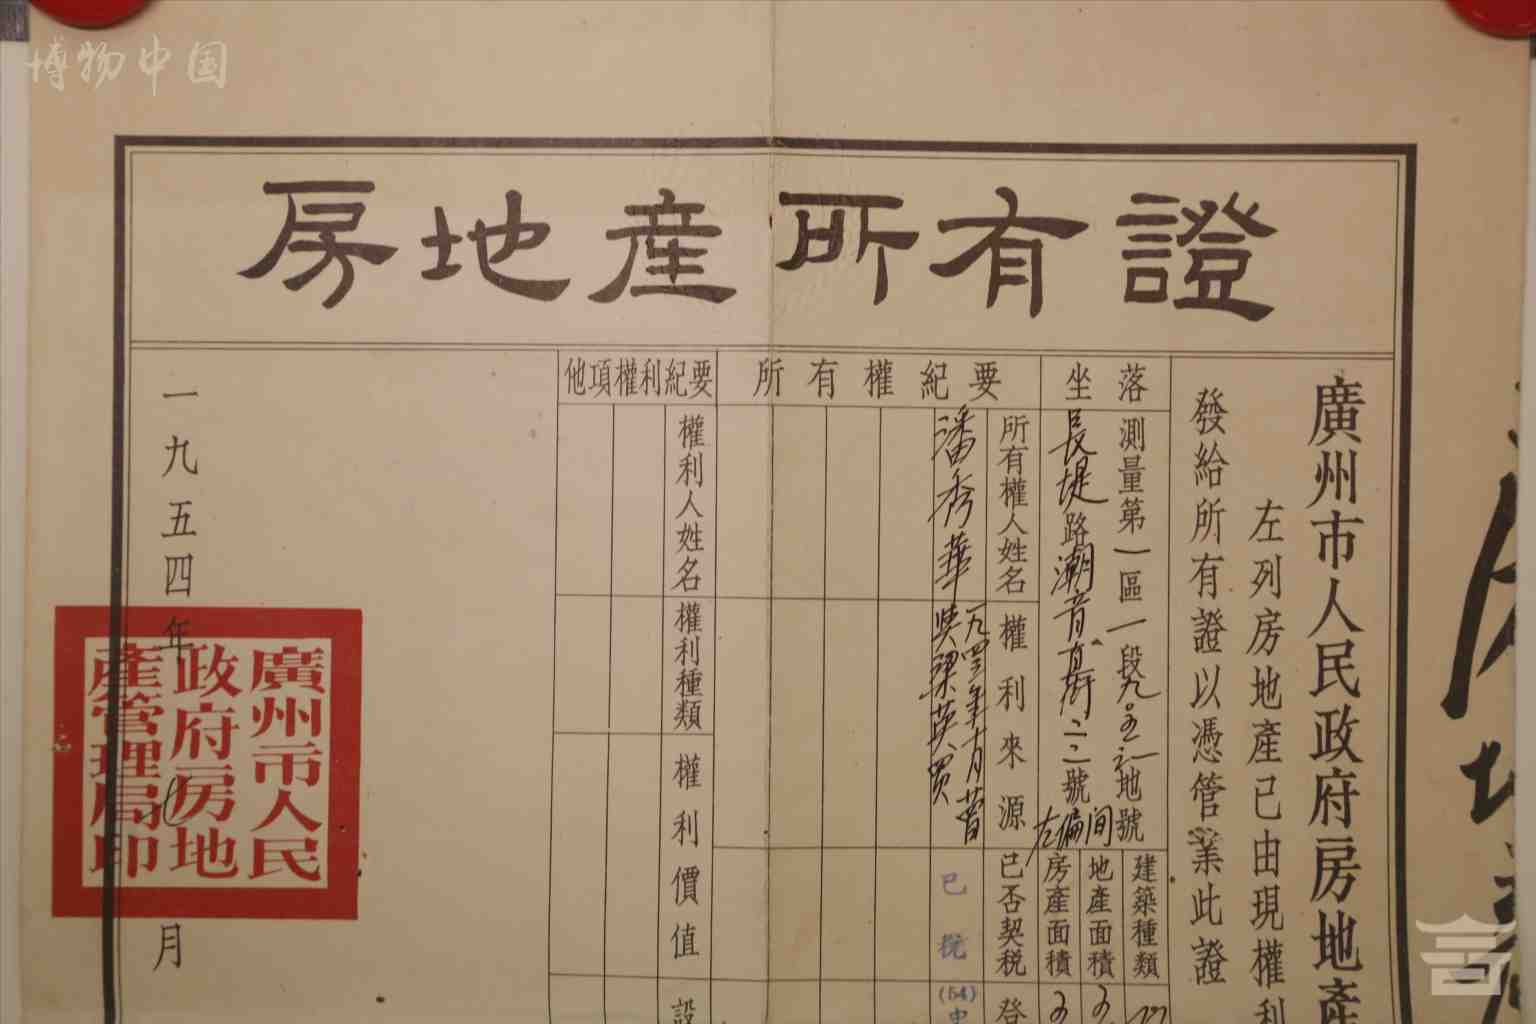 博物中国
房地產所有證
廣州市人民政府房地產
左列房地產已由現權利
發給所有證以憑管業此證
坐落
測量第一區一段九〇五之一地號
長堤路潮音直街二二號
左偏間
建築種類
地產面積
房產面積
所有權紀要
所有權人姓名
潘秀華
權利來源
一九四三年十月
已否契稅
已稅
(54)
登
他項權利紀要
權利人姓名
權利種類
權利價值
設
一九五四年
七
月
廣州市人民
政府房地
產管理局印